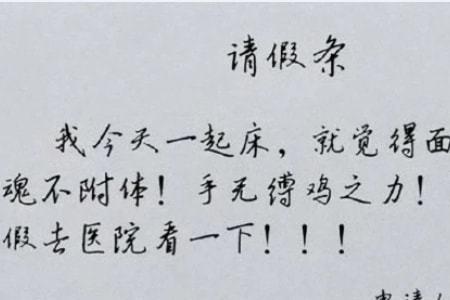 请假条
我今天一起床，就觉得面
魂不附体！手无缚鸡之力！
假去医院看一下！！！
申请人